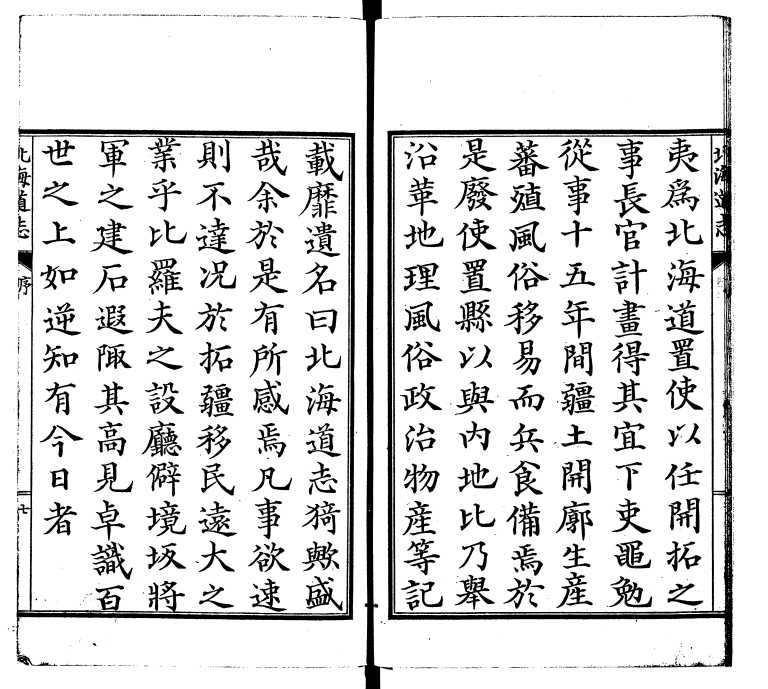 北海道志
夷爲北海道置使以任開拓之
事長官計畫得其宜下吏黽勉
從事十五年間疆土開廓生産
蕃殖風俗移易而兵食備焉於
是廢使置縣以與內地比乃舉
沿革地理風俗政治物產等記
載靡遺名曰北海道志猗歟盛
哉余於是有所感焉凡事欲速
則不達况於拓疆移民遠大之
業乎比羅夫之設廳僻境坂將
軍之建石遐陬其高見卓識百
世之上如逆知有今日者
北海道志
序
七